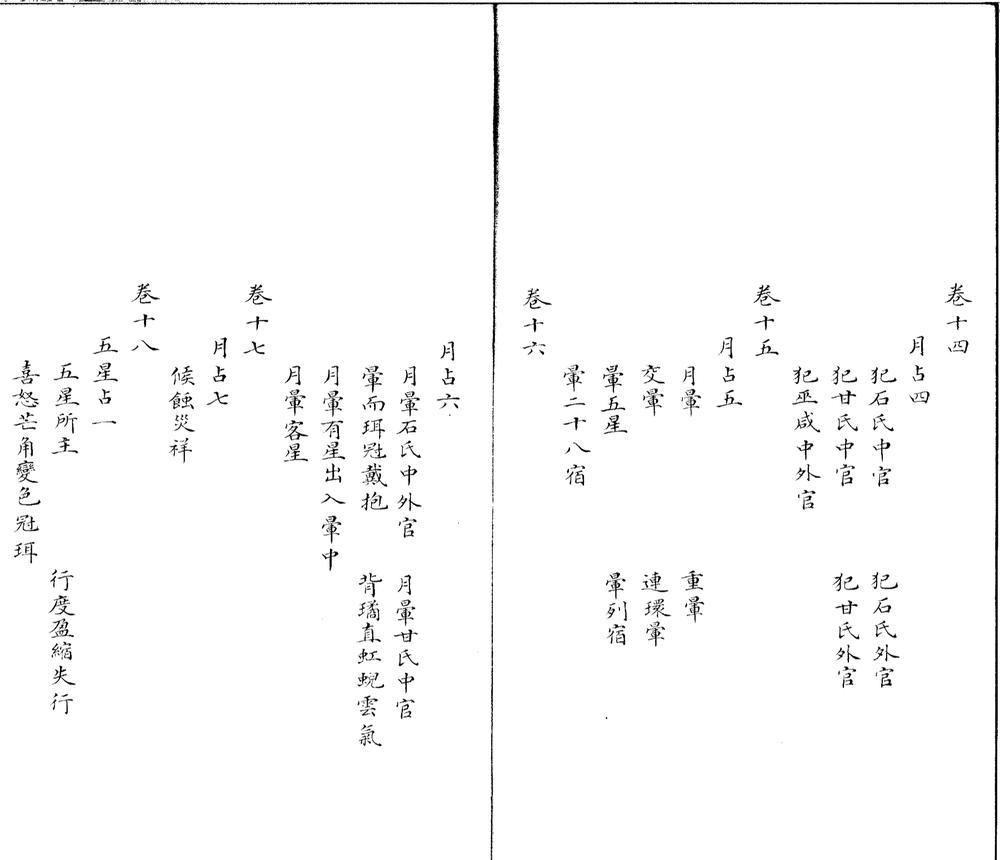 卷十四
月占四
犯石氏中官　犯石氏外官
犯甘氏中官　犯甘氏外官
犯巫咸中外官
卷十五
月占五
月暈　重暈
交暈　連環暈
暈五星　暈列宿
暈二十八宿
卷十六
月占六
月暈石氏中外官　月暈甘氏中官
暈而珥冠戴抱　背璚直虹蜺雲氣
月暈有星出入暈中
月暈客星
卷十七
月占七
候蝕災祥
卷十八
五星占一
五星所主　行度盈縮失行
喜怒芒角變色冠珥